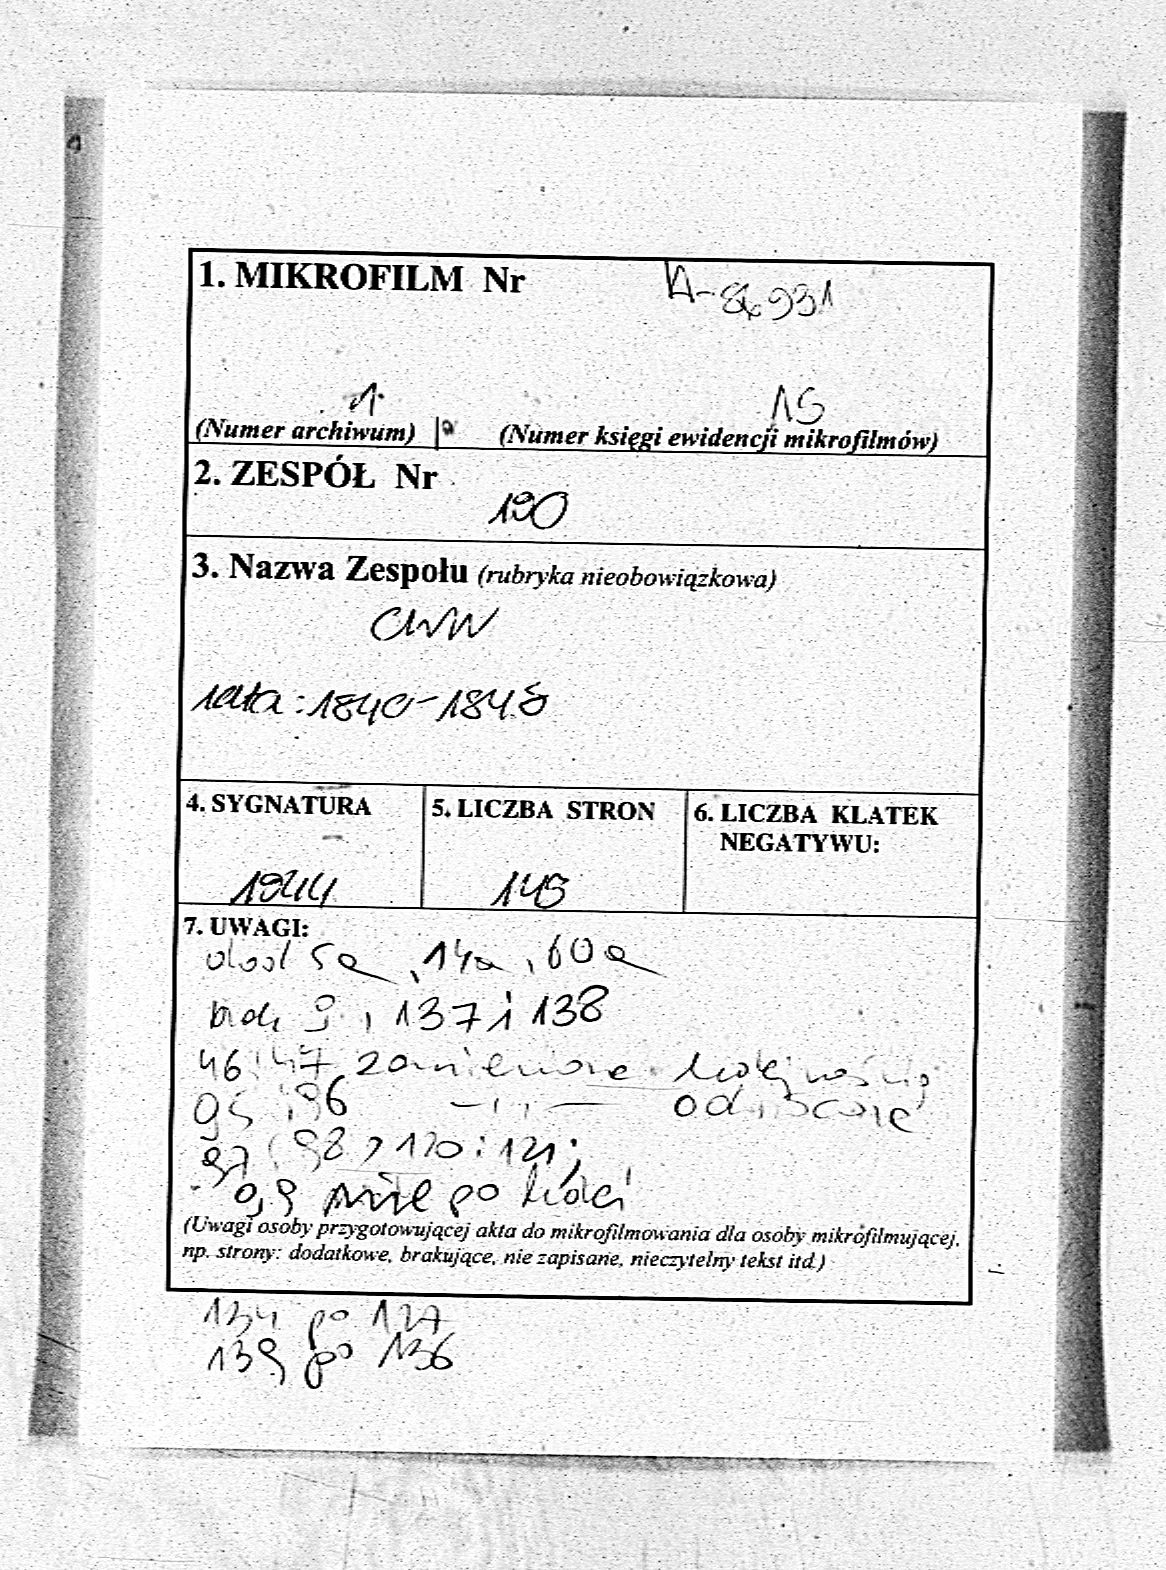 1. MIKROFILM Nr A-86931
1 15
(Numer archiwum) (Numer księgi ewidencji mikrofilmów)
2. ZESPÓŁ Nr
190
3. Nazwa Zespołu (rubryka nieobowiązkowa)
CWW
lata: 1840-1848
4. SYGNATURA 5. LICZBA STRON 6. LICZBA KLATEK
NEGATYWU:
1944 145
7. UWAGI:
dod 5a, 14a, 60a
brak 9, 137 i 138
46 i 47 zamienione kolejnością
95 i 96 —,,—
97 i 98, 120 i 121;
nie po kolei
(Uwagi osoby przygotowującej akta do mikrofilmowania dla osoby mikrofilmującej,
np. strony: dodatkowe, brakujące, nie zapisane, nieczytelny tekst itd.)
134 po 127
139 po 136